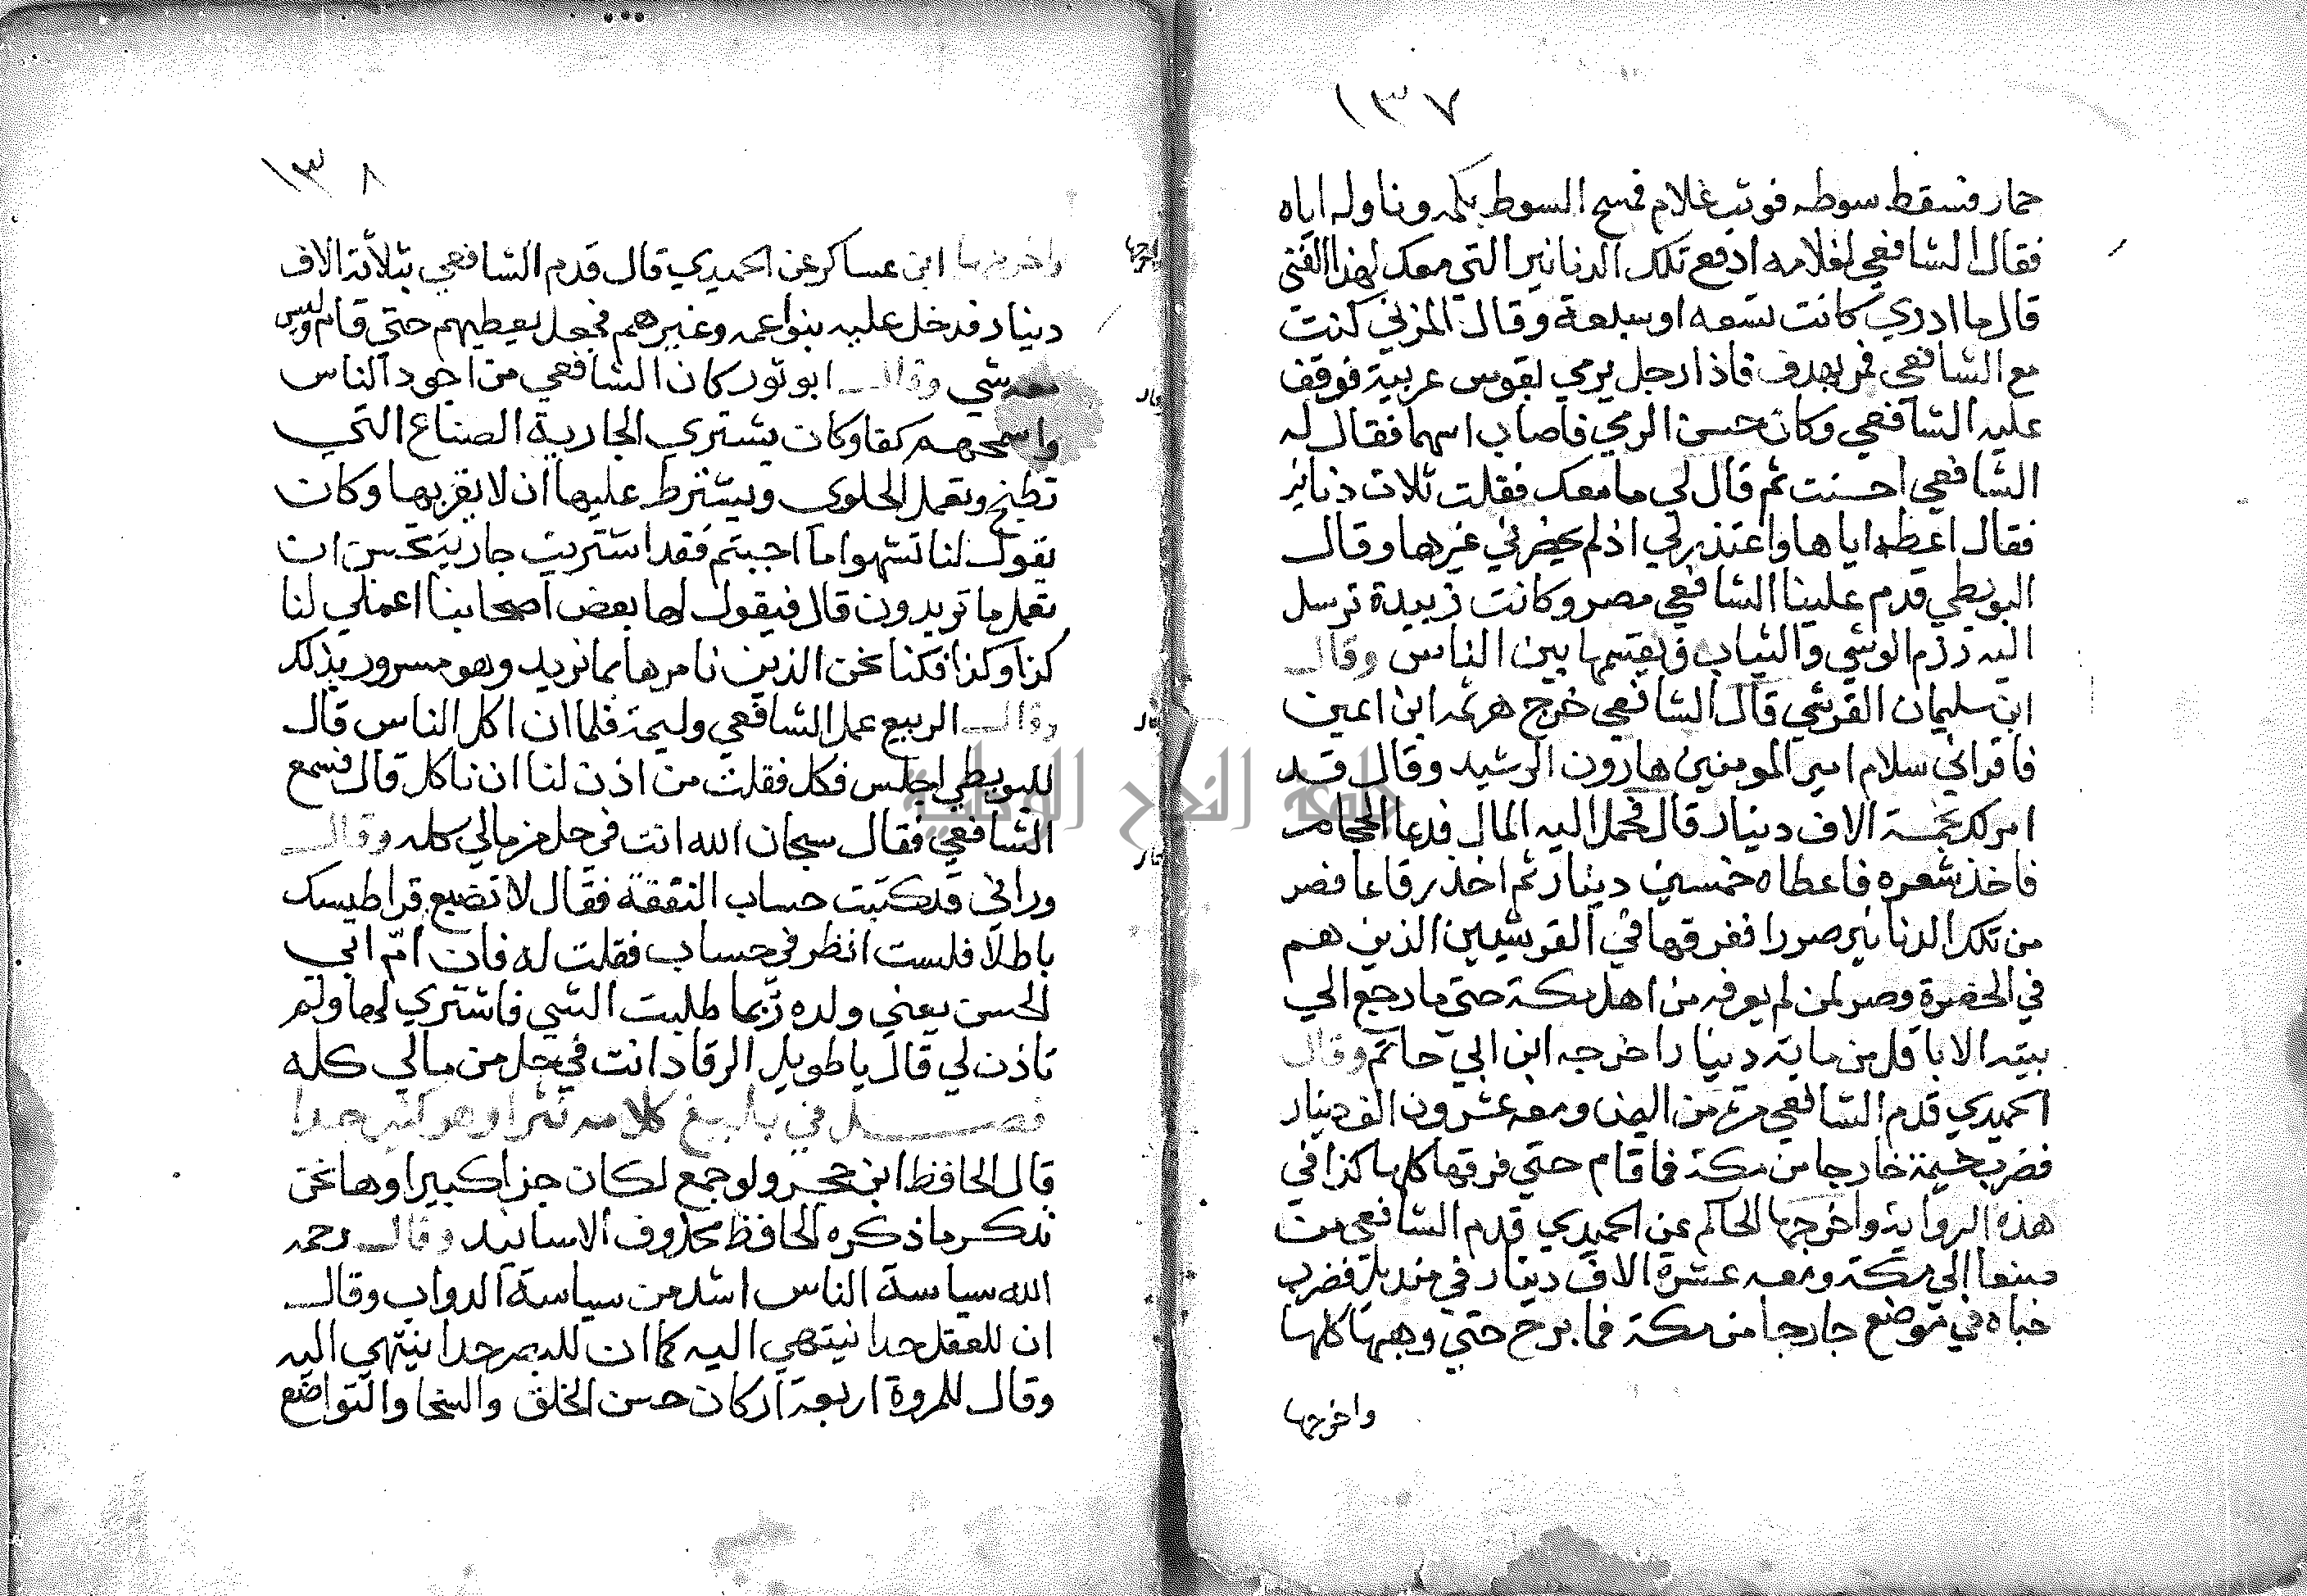 ١٣٧
حمار فسقط سوطه فوثب غلام فمسح السوط بكمه وناوله اياه
فقال الشافعي لغلامه ادفع تلك الدنانير التي معك لهذا الفتى
قال ما ادري كانت تسعه او سبعة وقال المزني كنت
مع الشافعي فمر بهدف فاذا رجل يرمي بقوس عربية فوقف
عليه الشافعي وكان حسن الرمي فاصاب اسهما فقال له
الشافعي احسنت ثم قال لي ما معك فقلت ثلاث دنانير
فقال اعطه اياها واعتذر لي اذ لم يحضرني غيرها وقال
البويطي قدم علينا الشافعي مصر وكانت زبيدة ترسل
اليه رزم الوشي والثياب فيقسمها بين الناس وقال
ابن سليمان القرشي قال الشافعي خرج هرثمه ابن اعين
فاقراني سلام امير المومنين هارون الرشيد وقال قد
امر لك بخمسة الاف دينار قال فحمل اليه المال فدعا الحجام
فاخذ شعره فاعطاه خمسين دينار ثم اخذ رقاعا فصر
من تلك الدنانير صررا ففرقها في القرشيين الذين هم
في الحضرة وصر لمن لم يعرفه من اهل مكة حتى ما رجع الى
بيته الا باقل من ماية دينار اخرجه ابن ابي حاتم وقال
الحميدي قدم الشافعي مرة من اليمن ومعه عشرون الف دينار
فضرب خيمة خارجا من مكة فما قام حتى فرقها كلها كذا في
هذه الرواية واخرجها الحاكم عن الحميدي قدم الشافعي من
صنعا الى مكة ومعه عشرة الاف دينار في منديل فضرب
خباه في موضع خارجا من مكة فما برح حتى وهبها كلها
واخرجها
١٣٨
واخرجها ابن عساكر عن الحميدي قال قدم الشافعي بثلاثة الاف
دينار فدخل عليه بنوا عمه وغيرهم فجعل يعطيهم حتى قام وليس
معه شي وقال ابو ثور كان الشافعي من اجود الناس
واسمحهم كفا وكان يشتري الجارية الصناع التي
تطبخ وتعمل الحلوى ويشترط عليها ان لا يقربها وكان
يقول لنا تشهوا ما احببتم فقد اشتريت جارية تحسن ان
تعمل ما تريدون قال فيقول لها بعض اصحابنا اعملي لنا
كذا وكذا فكنا نحن الذين نامرها بما نريد وهو مسرور بذلك
وقال الربيع عمل الشافعي وليمة فلما ان اكل الناس قال
للبويطي اجلس فكل فقلت من اذن لنا ان ناكل قال فسمع
الشافعي فقال سبحان الله انت في حل من مالي كله وقال
وراني قد كتبت حساب النفقة فقال لا تضيع قراطيسك
باطلا فلست انظر في حساب فقلت له فان ام ابي
الحسن يعني ولده ربما طلبت الشي فاشتري لها ولم
تاذن لي قال يا طويل الرقاد انت في حل من مالي كله
فصل في بليغ كلامه نثرا وهو كثير جدا
قال الحافظ ابن حجر ولو جمع لكان جزا كبيرا وها نحن
نذكر ما ذكره الحافظ محذوف الاسانيد وقال رحمه
الله سياسة الناس اشد من سياسة الدواب وقال
ان للعقل حدا ينتهي اليه كما ان للبصر حدا ينتهي اليه
وقال للمروة اربعة اركان حسن الخلق والسخا والتواضع